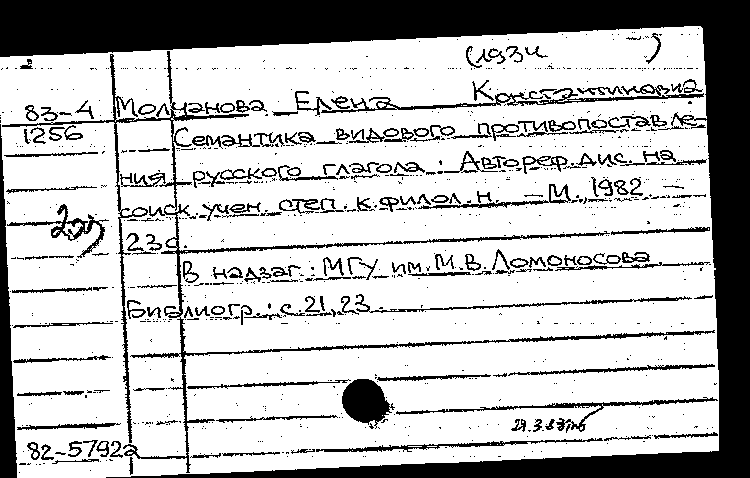 (1934 )
83-4 Молчанова Елена Константиновна
1256 Семантика видового противопоставле-
ния русского глагола: Автореф. дис. на
соиск. учен. степ. к. филол. н. — М., 1982. —
23 с.
В надзаг.: МГУ им. М.В. Ломоносова.
Библиогр.: с. 21, 23.
82-5792а